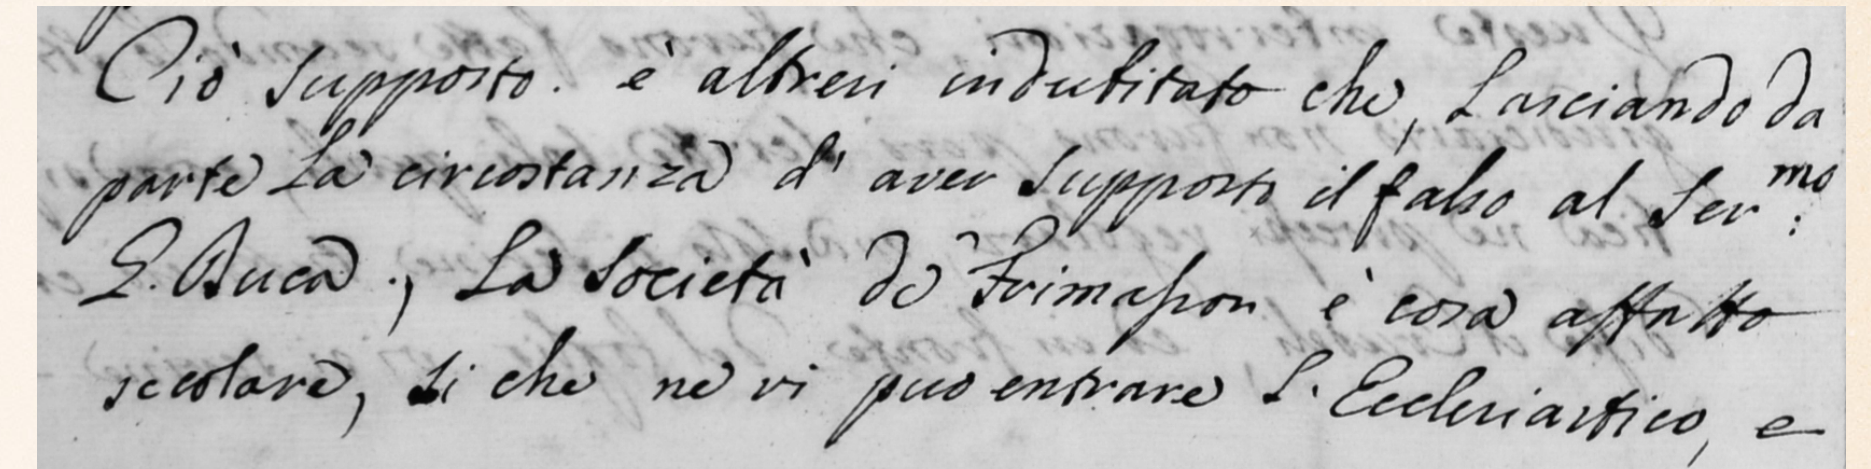 Ciò supposto. è altresi indubitato che, Lasciando da
parte La circostanza d' aver supposto il falso al Ser.mo
G. Duca., La Società de Frimasson è cosa affatto
secolare, si che ne vi puo entrare L'Ecclesiastico, e